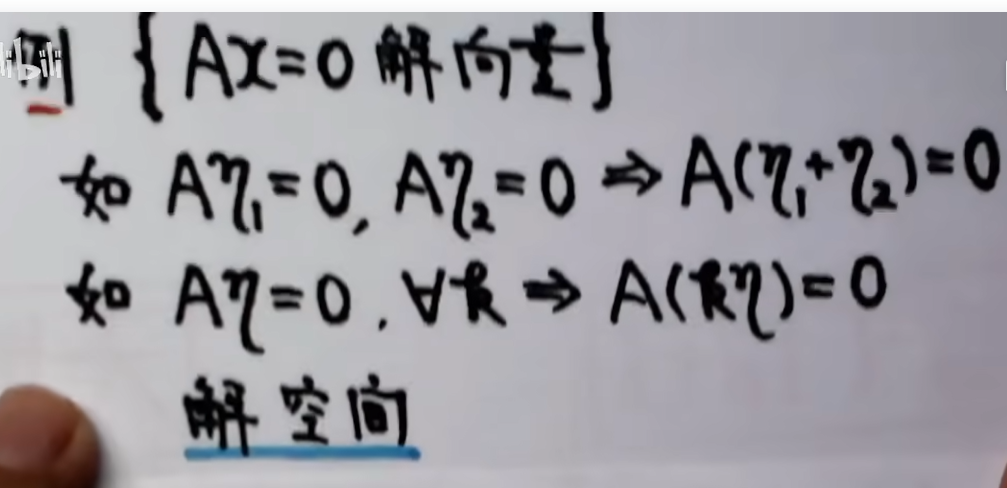 例 { Ax=0 解向量}
如 Aη₁=0, Aη₂=0 ⇒ A(η₁+η₂)=0
如 Aη=0, ∀k ⇒ A(kη)=0
解空间